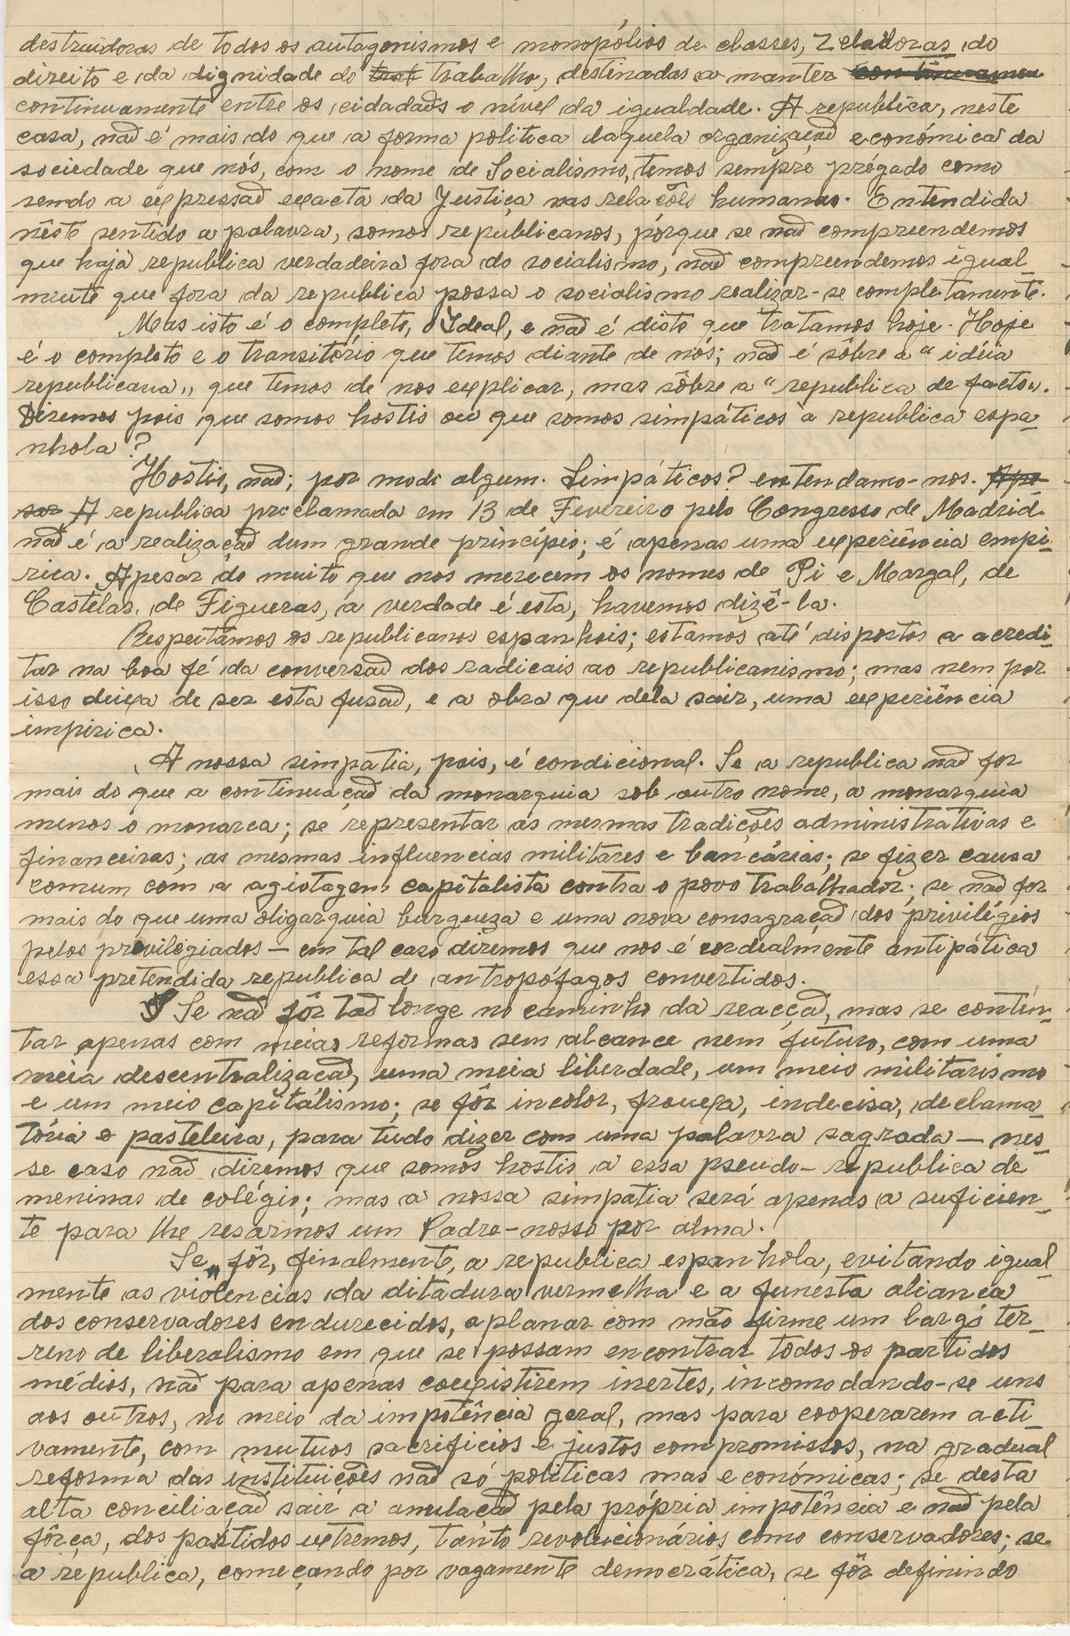 destruidoras de todos os antagonismos e monopólios de classes, zeladoras do
direito e da dignidade do trat trabalho, destinadas a manter continuamen
continuamente entre os cidadãos o nível da igualdade. A republica, neste
caso, não é mais do que a forma politica daquela organização económica da
sociedade que nós, com o nome de Socialismo, temos sempre prègado como
sendo a expressão exacta da Justiça nas relações humanas. Entendida
nêste sentido a palavra, somos republicanos, pórque se não compreendemos
que haja republica verdadeira fora do socialismo, não compreendemos igual-
mente que fora da republica possa o socialismo realizar-se completamente.
Mas isto é o completo, o Ideal, e não é disto que tratamos hoje. Hoje
é o completo e o transitório que temos diante de nós; não é sôbre a "idéia
republicana" que temos de nos explicar, mas sôbre a "republica de facto".
Diremos pois que somos hostis ou que somos simpáticos a republica espa-
nhola?
Hostis, não; por modo algum. Simpáticos? entendamo-nos. Ape
sar A republica proclamada em 13 de Fevereiro pelo Congresso de Madrid
não é a realização dum grande princípio; é apenas uma experiência empi-
rica. Apesar do muito que nos merecem os nomes de Pi e Margal, de
Castelar, de Figueras, a verdade é esta, havemos dizê-la.
Respeitâmos os republicanos espanhois; estamos até dispostos a acredi-
tar na boa fé da conversão dos radicais ao republicanismo; mas nem por
isso deixa de ser esta fusão, e a obra que dela sair, uma experiência
impirica.
A nossa simpatia, pois, é condicional. Se a republica não for
mais do que a continuação da monarquia sob outro nome, a monarquia
menos o monarca; se representar as mesmas tradições administrativas e
financeiras; as mesmas influencias militares e bancárias; se fizer causa
comum com a agiotagem capitalista contra o povo trabalhador; se não for
mais do que uma oligarquia burgueza e uma nova consagração dos privilégios
pelos privilegiados — em tal caso diremos que nos é cordialmente antipática
essa pretendida republica de antropófagos convertidos.
Se não fôr tão longe no caminho da reacção, mas se conten-
tar apenas com meias reformas sem alcance nem futuro, com uma
meia descentralização, uma meia liberdade, um meio militarismo
e um meio capitalismo; se fôr incolor, frouxa, indecisa, declama-
tória e pasteleira, para tudo dizer com uma palavra sagrada — nes-
se caso não diremos que somos hostis a essa pseudo-republica de
meninas de colégio; mas a nossa simpatia será apenas a suficien-
te para lhe resarmos um Padre-nosso por alma.
Se, fôr, finalmente, a republica espanhola, evitando igual-
mente as violencias da ditadura vermelha e a funesta aliança
dos conservadores endurecidos, aplanar com mão firme um largo ter-
reno de liberalismo em que se possam encontrar todos os partidos
médios, não para apenas coexistirem inertes, incomodando-se uns
aos outros, no meio da impotência geral, mas para cooperarem acti-
vamente, com mutuos sacrificios e justos compromissos, na gradual
reforma das instituições não só políticas mas económicas; se desta
alta conciliação sair a anulação pela própria impotência e não pela
fôrça, dos partidos extremos, tanto revolucionários como conservadores; se
a republica, começando por vagamente democrática, se fôr definindo